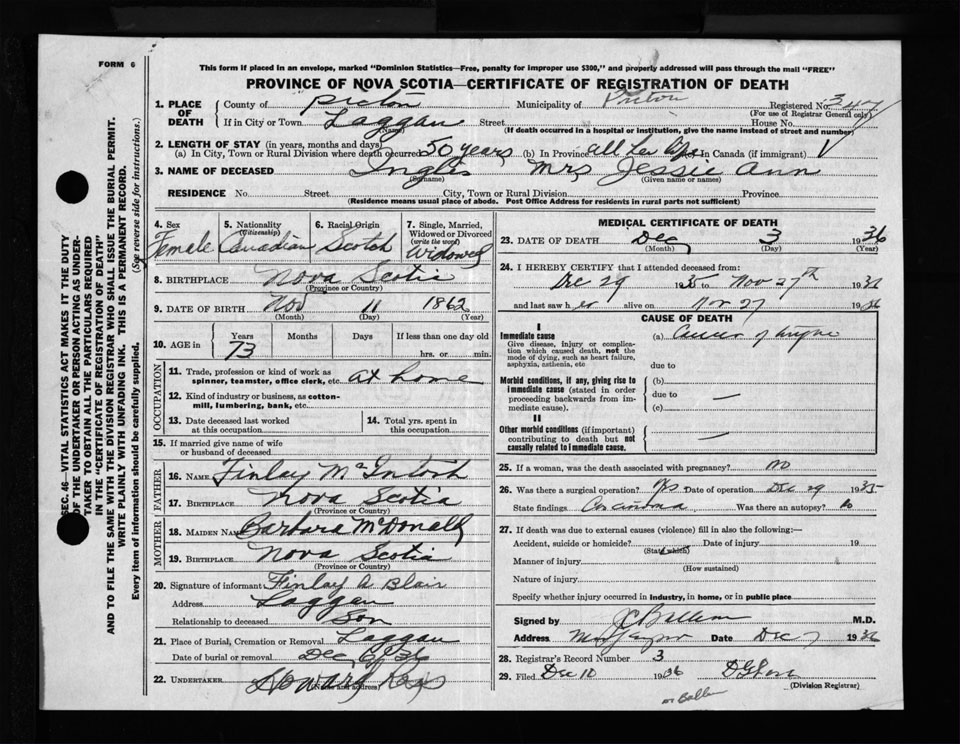 FORM 6
This form if placed in an envelope, marked "Dominion Statistics—Free, penalty for improper use $300," and properly addressed will pass through the mail "FREE"
PROVINCE OF NOVA SCOTIA—CERTIFICATE OF REGISTRATION OF DEATH
1. PLACE OF DEATH
County of Pictou Municipality of Pictou Registered No. 347
(For use of Registrar General only)
If in City or Town Laggan Street House No.
(Name) (If death occurred in a hospital or institution, give the name instead of street and number)
2. LENGTH OF STAY (in years, months and days)
(a) In City, Town or Rural Division where death occurred 50 years (b) In Province all her life (c) In Canada (if immigrant)
3. NAME OF DECEASED Inglis Mrs Jessie Ann
(Surname) (Given name or names)
RESIDENCE No. Street City, Town or Rural Division Province
(Residence means usual place of abode. Post Office Address for residents in rural parts not sufficient)
4. Sex
Female
5. Nationality
(Citizenship)
Canadian
6. Racial Origin
Scotch
7. Single, Married, Widowed or Divorced
(write the word)
Widowed
8. BIRTHPLACE Nova Scotia
(Province or Country)
9. DATE OF BIRTH Nov 11 1862
(Month) (Day) (Year)
10. AGE in Years Months Days If less than one day old
73 hrs. or min.
OCCUPATION
11. Trade, profession or kind of work as
spinner, teamster, office clerk, etc. at home
12. Kind of industry or business, as cotton-
mill, lumbering, bank, etc.
13. Date deceased last worked
at this occupation
14. Total yrs. spent in
this occupation
15. If married give name of wife
or husband of deceased
FATHER
16. NAME Finlay McIntosh
17. BIRTHPLACE Nova Scotia
(Province or Country)
MOTHER
18. MAIDEN NAME Barbara McDonald
19. BIRTHPLACE Nova Scotia
(Province or Country)
20. Signature of informant Finlay A Blair
Address Laggan
Relationship to deceased Son
21. Place of Burial, Cremation or Removal Laggan
Date of burial or removal Dec 6/36
22. UNDERTAKER Howard Ross
(Name and address)
MEDICAL CERTIFICATE OF DEATH
23. DATE OF DEATH Dec 3 1936
(Month) (Day) (Year)
24. I HEREBY CERTIFY that I attended deceased from:
Dec 29 1935 to Nov 27th 1936
and last saw her alive on Nov 27 1936
CAUSE OF DEATH
I
Immediate cause
Give disease, injury or complica-
tion which caused death, not the
mode of dying, such as heart failure,
asphyxia, asthenia, etc
(a) Cancer of
due to
Morbid conditions, if any, giving rise to
immediate cause (stated in order
proceeding backwards from im-
mediate cause).
(b)
due to —
(c)
II
Other morbid conditions (if important)
contributing to death but not
causally related to immediate cause.
—
25. If a woman, was the death associated with pregnancy? no
26. Was there a surgical operation? yes Date of operation Dec 29 1935
State findings Carcinoma Was there an autopsy? no
27. If death was due to external causes (violence) fill in also the following:—
Accident, suicide or homicide? Date of injury 19
(State which)
Manner of injury
(How sustained)
Nature of injury
Specify whether injury occurred in industry, in home, or in public place
Signed by M.D.
Address Date Dec 7 1936
28. Registrar's Record Number 3
29. Filed Dec 10 1936
(Division Registrar)
SEC. 46—VITAL STATISTICS ACT MAKES IT THE DUTY
OF THE UNDERTAKER OR PERSON ACTING AS UNDER-
TAKER TO OBTAIN ALL THE PARTICULARS REQUIRED
IN THE "CERTIFICATE OF REGISTRATION OF DEATH"
AND TO FILE THE SAME WITH THE DIVISION REGISTRAR WHO SHALL ISSUE THE BURIAL PERMIT.
WRITE PLAINLY WITH UNFADING INK. THIS IS A PERMANENT RECORD.
Every item of information should be carefully supplied. (See reverse side for instructions.)